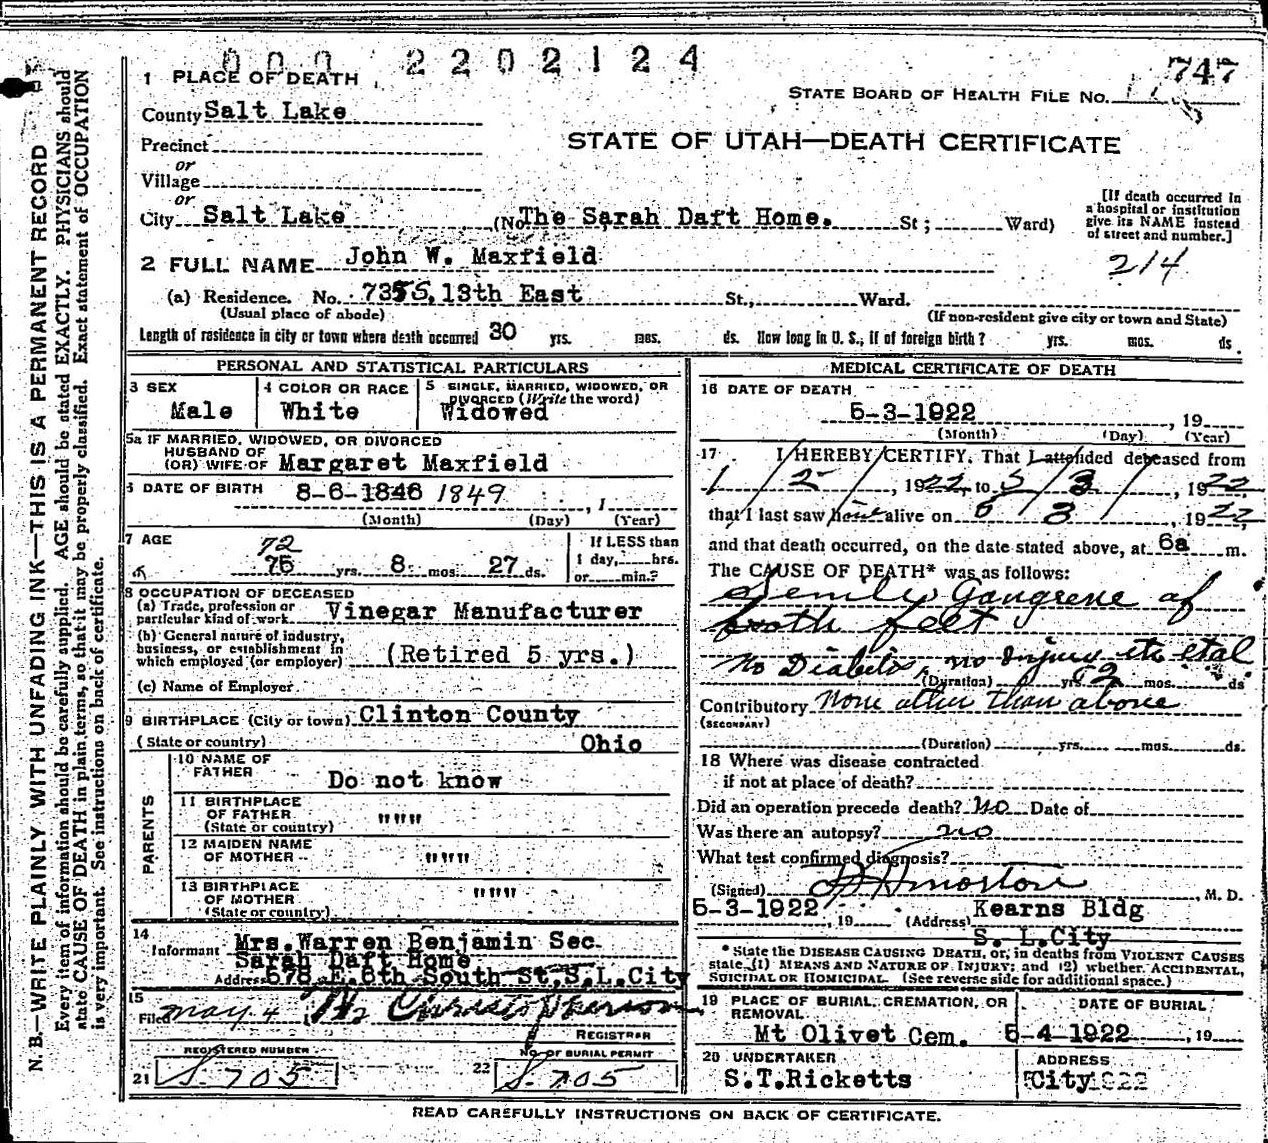 0 0 0 2 2 0 2 1 2 4
747
1 PLACE OF DEATH
STATE BOARD OF HEALTH FILE NO.
County Salt Lake
STATE OF UTAH—DEATH CERTIFICATE
Precinct
or
Village
or
City Salt Lake (No The Sarah Daft Home. St; Ward)
[If death occurred in
a hospital or institution
give its NAME instead
of street and number.]
2 FULL NAME John W. Maxfield
214
(a) Residence. No. 735 S, 13th East St., Ward.
(Usual place of abode)
(If non-resident give city or town and State)
Length of residence in city or town where death occurred 30 yrs. mos. ds. How long in U. S., if of foreign birth? yrs. mos. ds.
PERSONAL AND STATISTICAL PARTICULARS
3 SEX
Male
4 COLOR OR RACE
White
5 SINGLE, MARRIED, WIDOWED, OR
DIVORCED (Write the word)
Widowed
5a IF MARRIED, WIDOWED, OR DIVORCED
HUSBAND OF
(OR) WIFE OF Margaret Maxfield
6 DATE OF BIRTH 8-6-1846 1849 , 1
(Month) (Day) (Year)
7 AGE
72
75 yrs. 8 mos. 27 ds.
If LESS than
1 day, hrs.
or min.?
8 OCCUPATION OF DECEASED
(a) Trade, profession or
particular kind of work Vinegar Manufacturer
(b) General nature of industry,
business, or establishment in
which employed (or employer) (Retired 5 yrs.)
(c) Name of Employer
9 BIRTHPLACE (City or town) Clinton County
(State or country) Ohio
PARENTS
10 NAME OF
FATHER Do not know
11 BIRTHPLACE
OF FATHER """"
(State or country)
12 MAIDEN NAME
OF MOTHER """"
13 BIRTHPLACE
OF MOTHER """"
(State or country)
14
Informant Mrs. Warren Benjamin Sec.
Sarah Daft Home
Address 678 E. 6th South St, S.L.City
15
Filed May 4
REGISTRAR
REGISTERED NUMBER
21 S. 705
NO. OF BURIAL PERMIT
22 S. 705
MEDICAL CERTIFICATE OF DEATH
16 DATE OF DEATH
5-3-1922 , 19
(Month) (Day) (Year)
17 I HEREBY CERTIFY, That I attended deceased from
1/2/ , 1922, to 5/3/ , 1922,
that I last saw him alive on 5 3 , 1922,
and that death occurred, on the date stated above, at 6a m.
The CAUSE OF DEATH* was as follows:
Senile Gangrene of
both feet
No Diabetis, no injury etc et al
(Duration) yrs. 2 mos. ds
Contributory None other than above
(SECONDARY)
(Duration) yrs. mos. ds.
18 Where was disease contracted
if not at place of death?
Did an operation precede death? no Date of
Was there an autopsy? no
What test confirmed diagnosis?
(Signed) , M. D.
5-3-1922 , 19 (Address) Kearns Bldg
S. L.City
* State the DISEASE CAUSING DEATH, or, in deaths from VIOLENT CAUSES
state (1) MEANS AND NATURE OF INJURY; and (2) whether ACCIDENTAL,
SUICIDAL OR HOMICIDAL. (See reverse side for additional space.)
19 PLACE OF BURIAL, CREMATION, OR
REMOVAL
Mt Olivet Cem.
DATE OF BURIAL
5-4-1922 , 19
20 UNDERTAKER
S.T.Ricketts
ADDRESS
City
READ CAREFULLY INSTRUCTIONS ON BACK OF CERTIFICATE.
N. B.—WRITE PLAINLY WITH UNFADING INK—THIS IS A PERMANENT RECORD
Every item of information should be carefully supplied. AGE should be stated EXACTLY. PHYSICIANS should
state CAUSE OF DEATH in plain terms, so that it may be properly classified. Exact statement of OCCUPATION
is very important. See instructions on back of certificate.